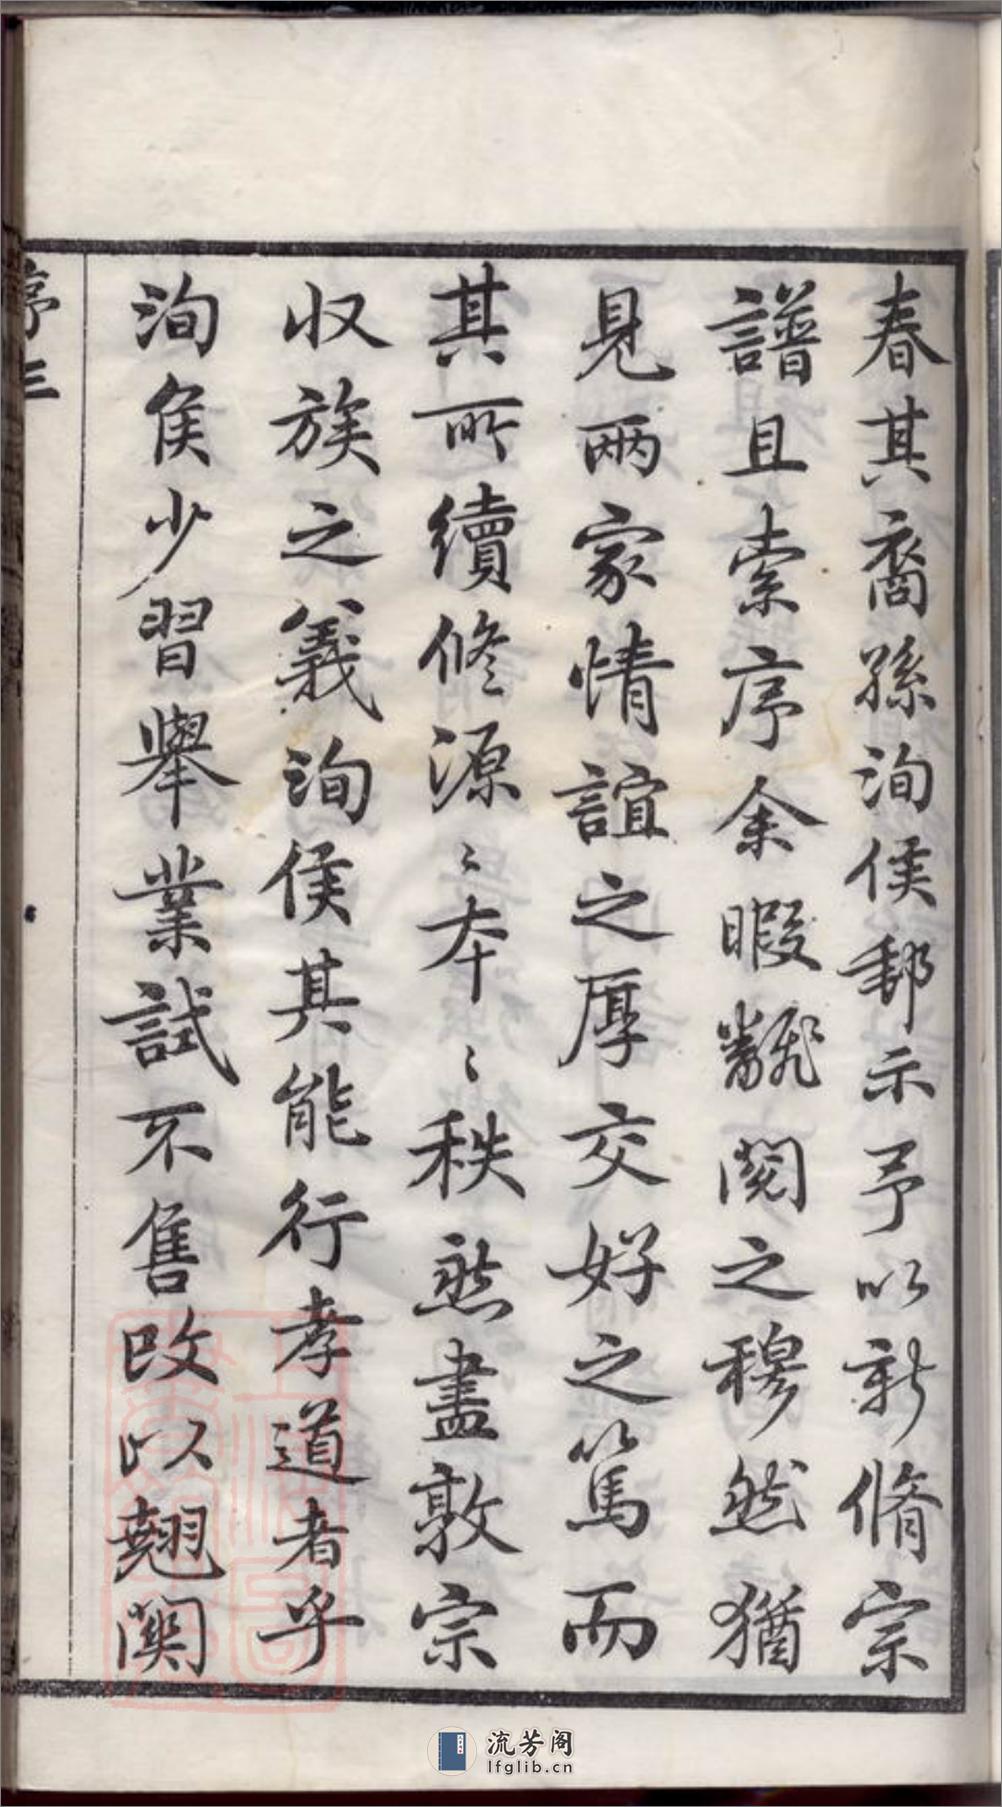 春其裔孫洵侯郵示予以新脩宗
譜且索序余暇繙閱之穆然猶
見兩家情誼之厚交好之篤而
其所續修源〻本〻秩然盡敦宗
收族之義洵侯其能行孝道者乎
洵矦少習舉業試不售改以翹關
序 三
流芳阁
lfglib.cn